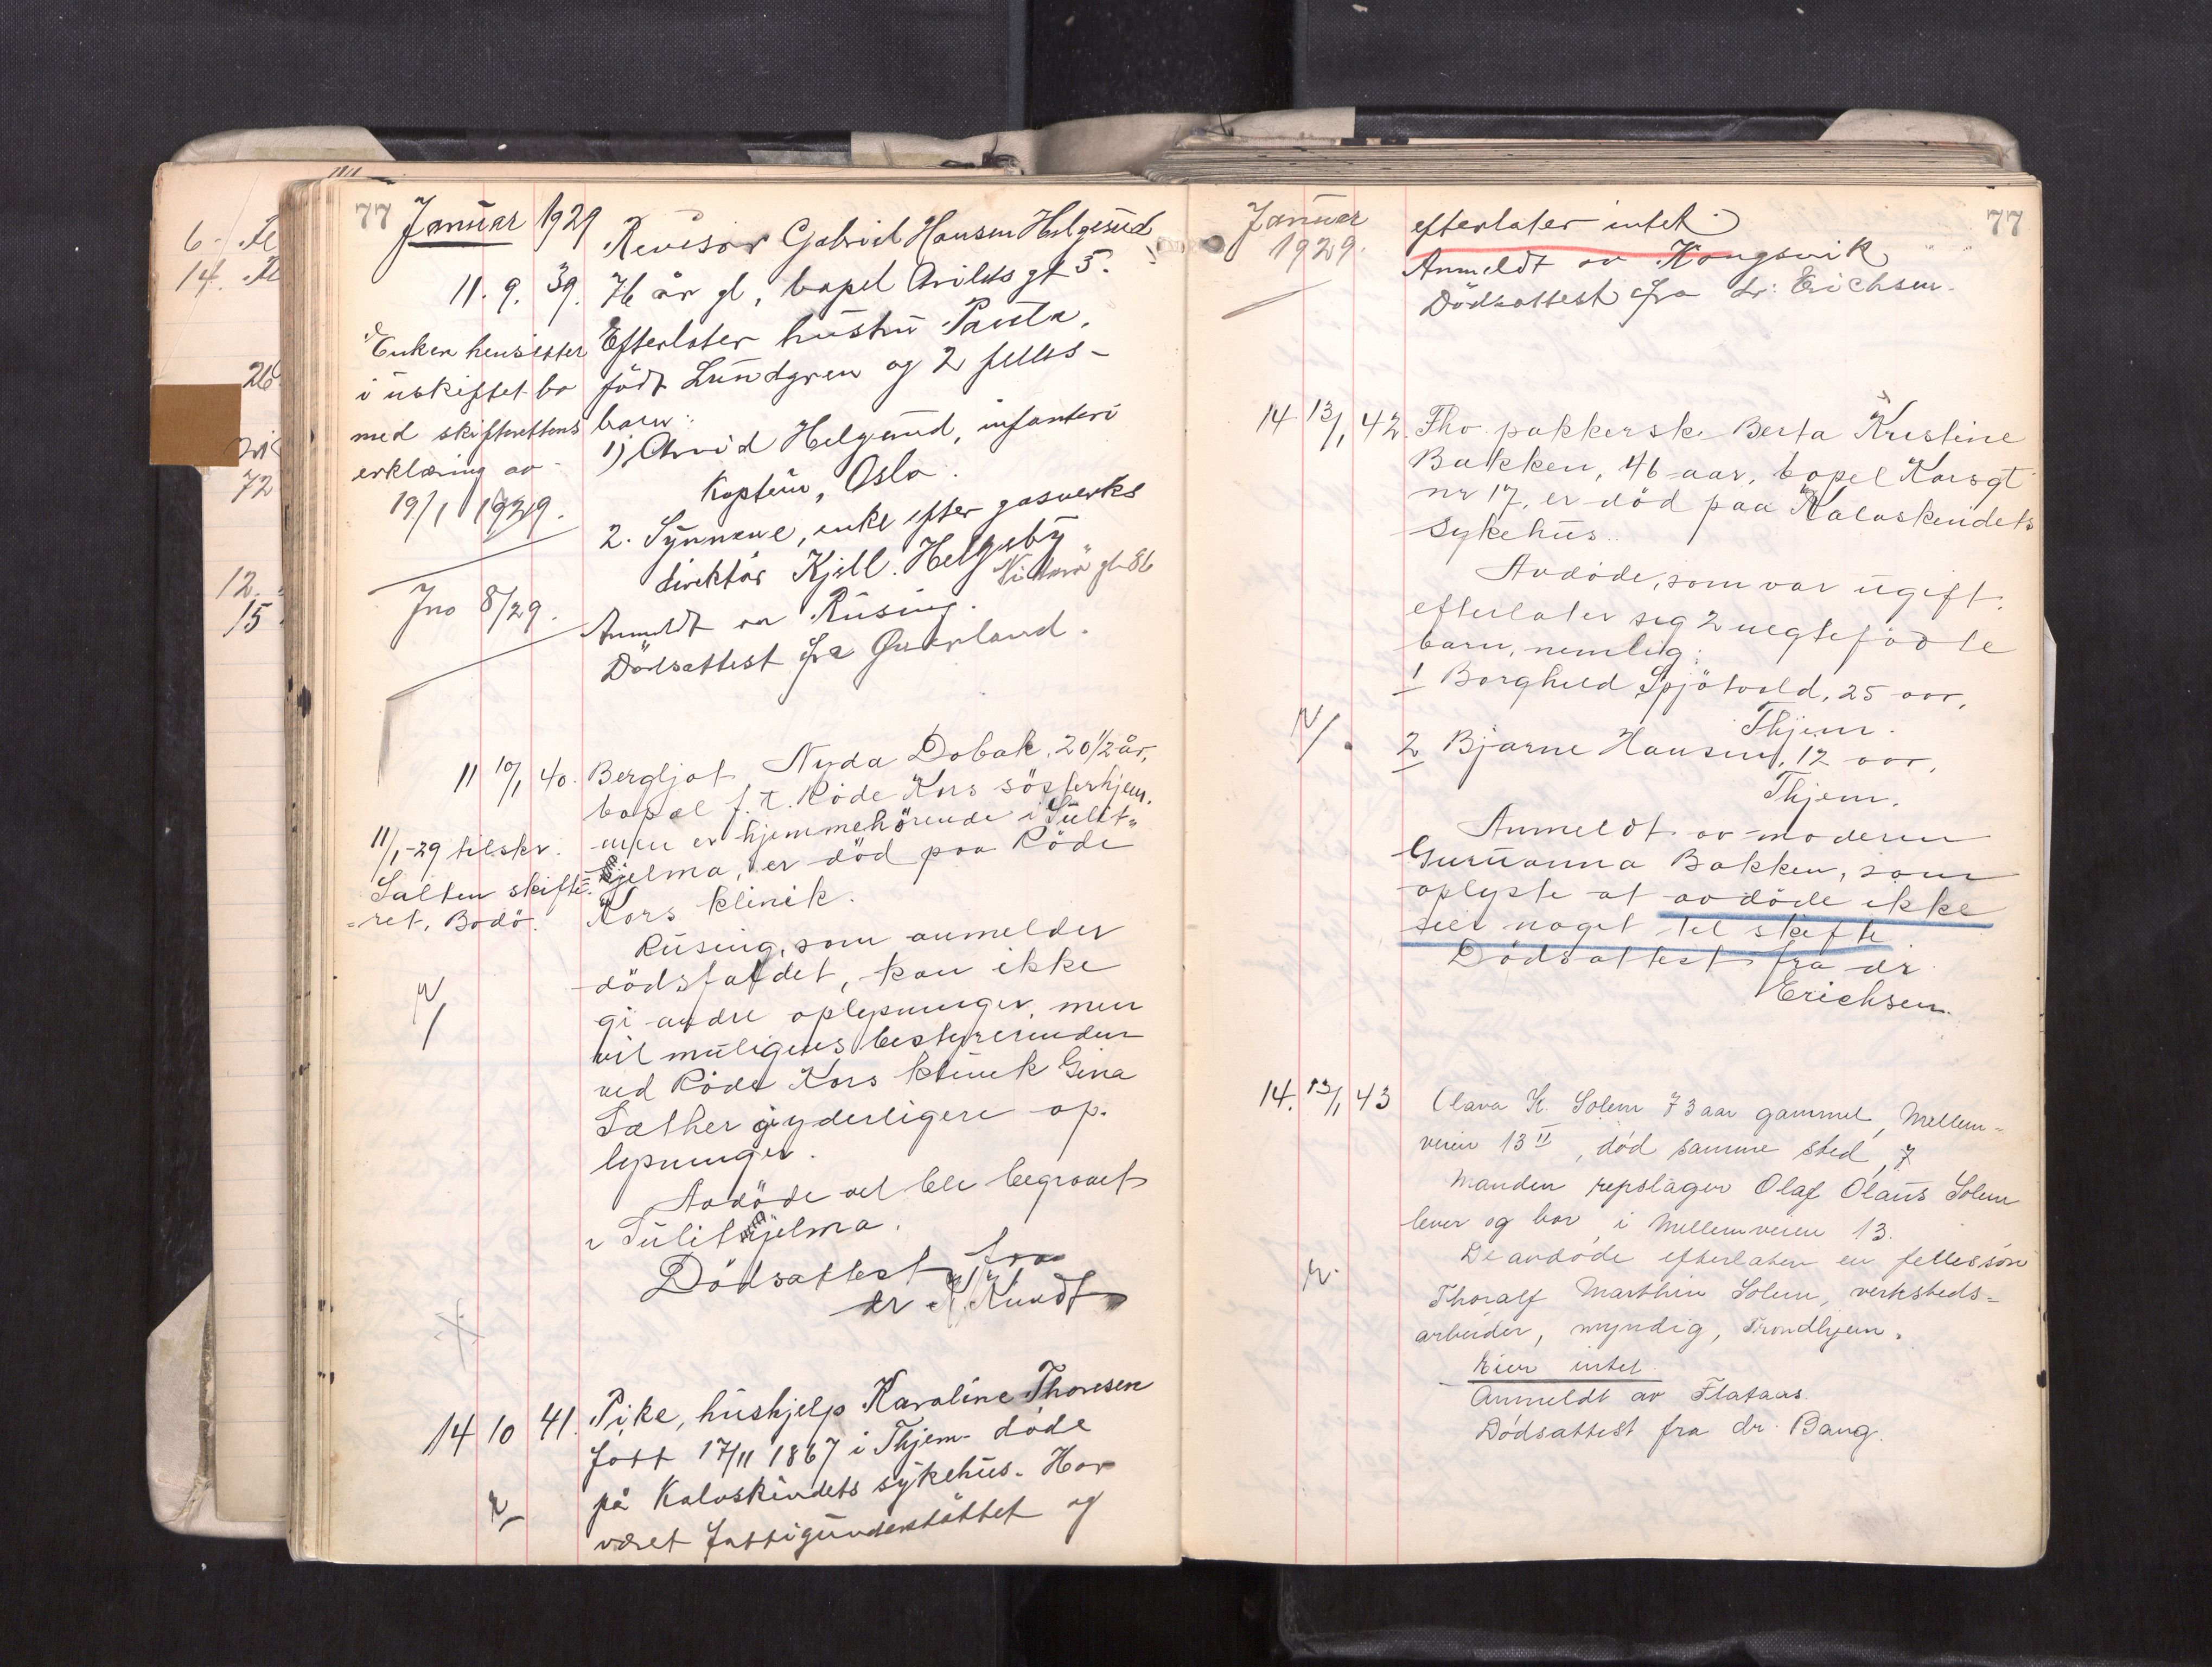 77 Januar 1929
11. 9. 39. Revisor Gabriel Hansen Helgesud
76 år gl, bopel Arildsgt 5.
Efterlater hustru Paula,
født Lundgren og 2 felles-
barn:
1) Arvid Helgesud, infanteri
kaptein, Oslo.
2. Synnøve, enke efter gasverks
direktør Kjell. Helgeby
gt 86
Anmeldt av Rusing.
Dødsattest fra Øverland.
Enken hensitter
i uskiftet bo
med skifterettens
erklæring av
19/1 1929.
Jno 8/29.
11 10/1 40. Bergljot Nyda Dobak, 20 1/2 år,
bopæl f.t. Røde Kors søsterhjem.
men er hjemmehørende i Sulit-
jelma, er død paa Røde
Kors klinik.
Rusing, som anmelder
dødsfaldet, kan ikke
gi andre oplysninger, men
vil muligens bestyrerinden
ved Røde Kors klinik Gina
Sæther gi yderligere op-
lysninger.
Avdøde vil bli begravet
i Sulitjelma.
Dødsattest fra
dr K. Kundt
11/1-29 tilskr.
Salten skifte-
ret, Bodø.
14 10 41. Pike, hushjelp Karoline Thoresen
født 17/11 1867 i Thjem døde
på Kalvskindets sykehus. Har
været fattigunderstøttet og
Januar
1929.
77
efterlater intet.
Anmeldt av Kongsvik
Dødsattest fra dr: Erichsen.
14 13/1 42. Fhv. pakkersk. Berta Kristine
Bakken, 46 aar, bopel Korsgt
nr 17, er død paa Kalvskindets
sykehus.
Avdøde, som var ugift,
efterlater sig 2 uegtefødte
barn, nemlig:
1 Borghild Spjøtvold, 25 aar,
Thjem.
2 Bjarne Hansen, 12 aar,
Thjem.
Anmeldt av moderen
Guruanna Bakken, som
oplyste at avdøde ikke
eier noget til skifte.
Dødsattest fra dr
Erichsen.
14. 13/1 43 Olava K. Solem 73 aar gammel, Mellem-
veien 13 II, død samme sted,
Manden repslager Olaf Olaus Solem
lever og bor i Mellemveien 13.
De avdøde efterlater en fellessøn
Thoralf Marthin Solem, verksteds-
arbeider, myndig, Trondhjem.
Eier intet.
Anmeldt av Flataas.
Dødsattest fra dr. Bang.